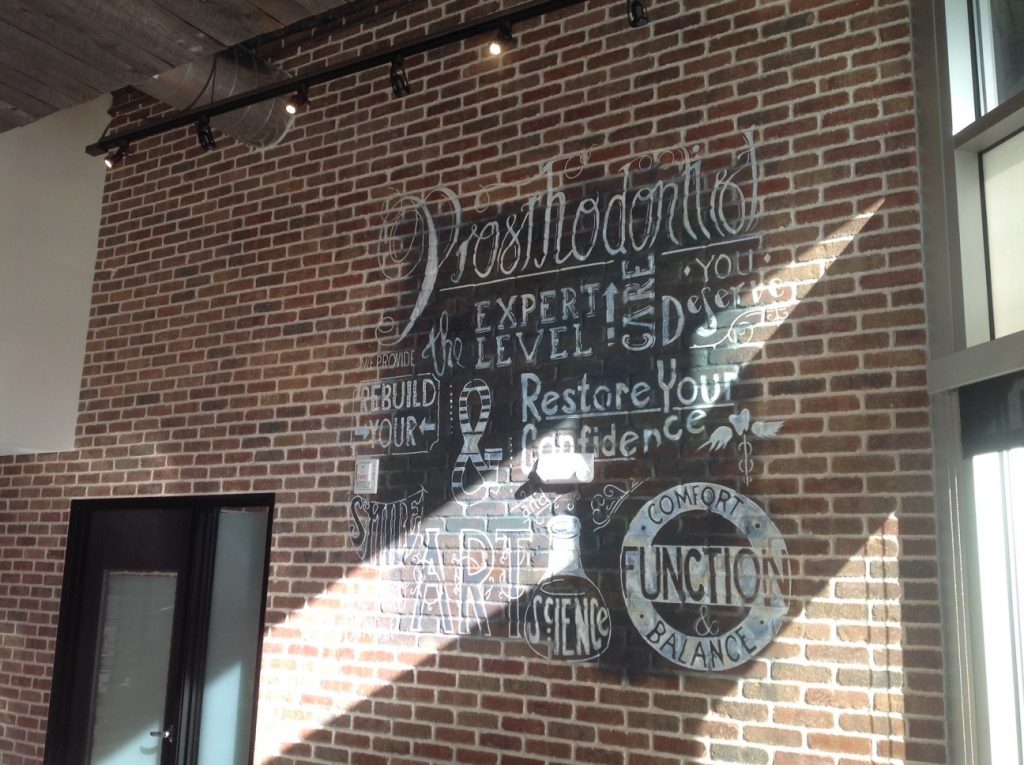 Prosthodontist
WE PROVIDE the EXPERT LEVEL CARE YOU Deserve
REBUILD YOUR
SMILE
Restore Your
Confidence
ART
and
SCIENCE
COMFORT
FUNCTION
&
BALANCE